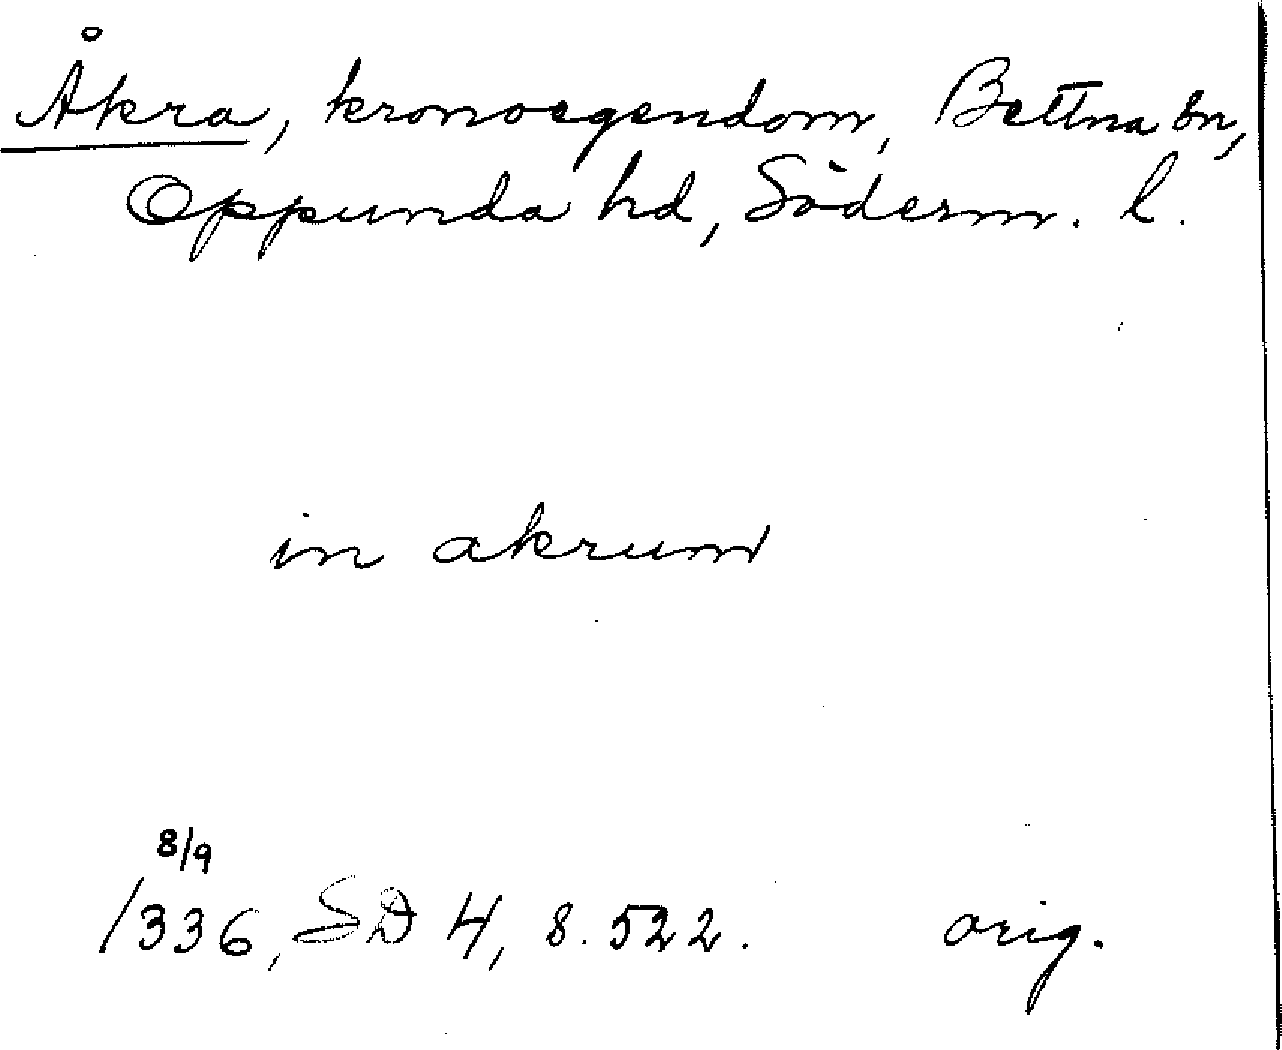 Åkra, kronoegendom, Bettna sn,
Oppunda hd, Söderm. l.
in akrum
8/9
1336, SD 4, s. 522. orig.